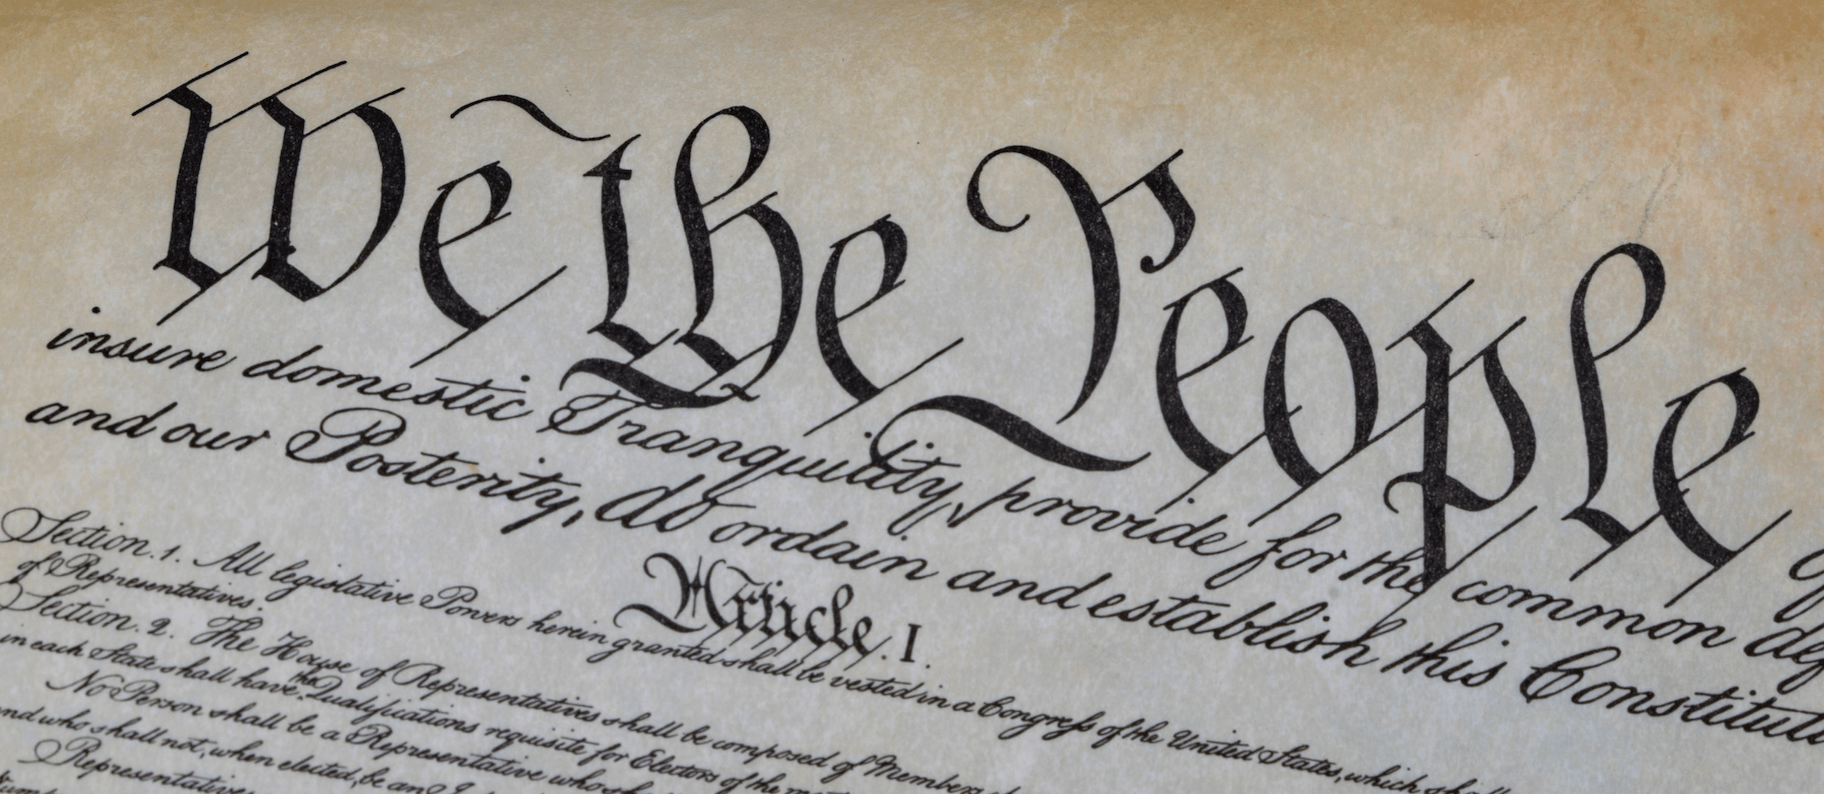 We the People
insure domestic Tranquility, provide for the common
and our Posterity, do ordain and establish this
Article. I.
Section. 1. All legislative Powers herein granted shall be vested in a Congreſs of the United States, which
of Representatives.
Section. 2. The House of Representatives shall be composed of Members
in each State shall have the Qualifications requisite for Electors of the
No Person shall be a Representative who
and who shall not, when elected, be an
Representatives